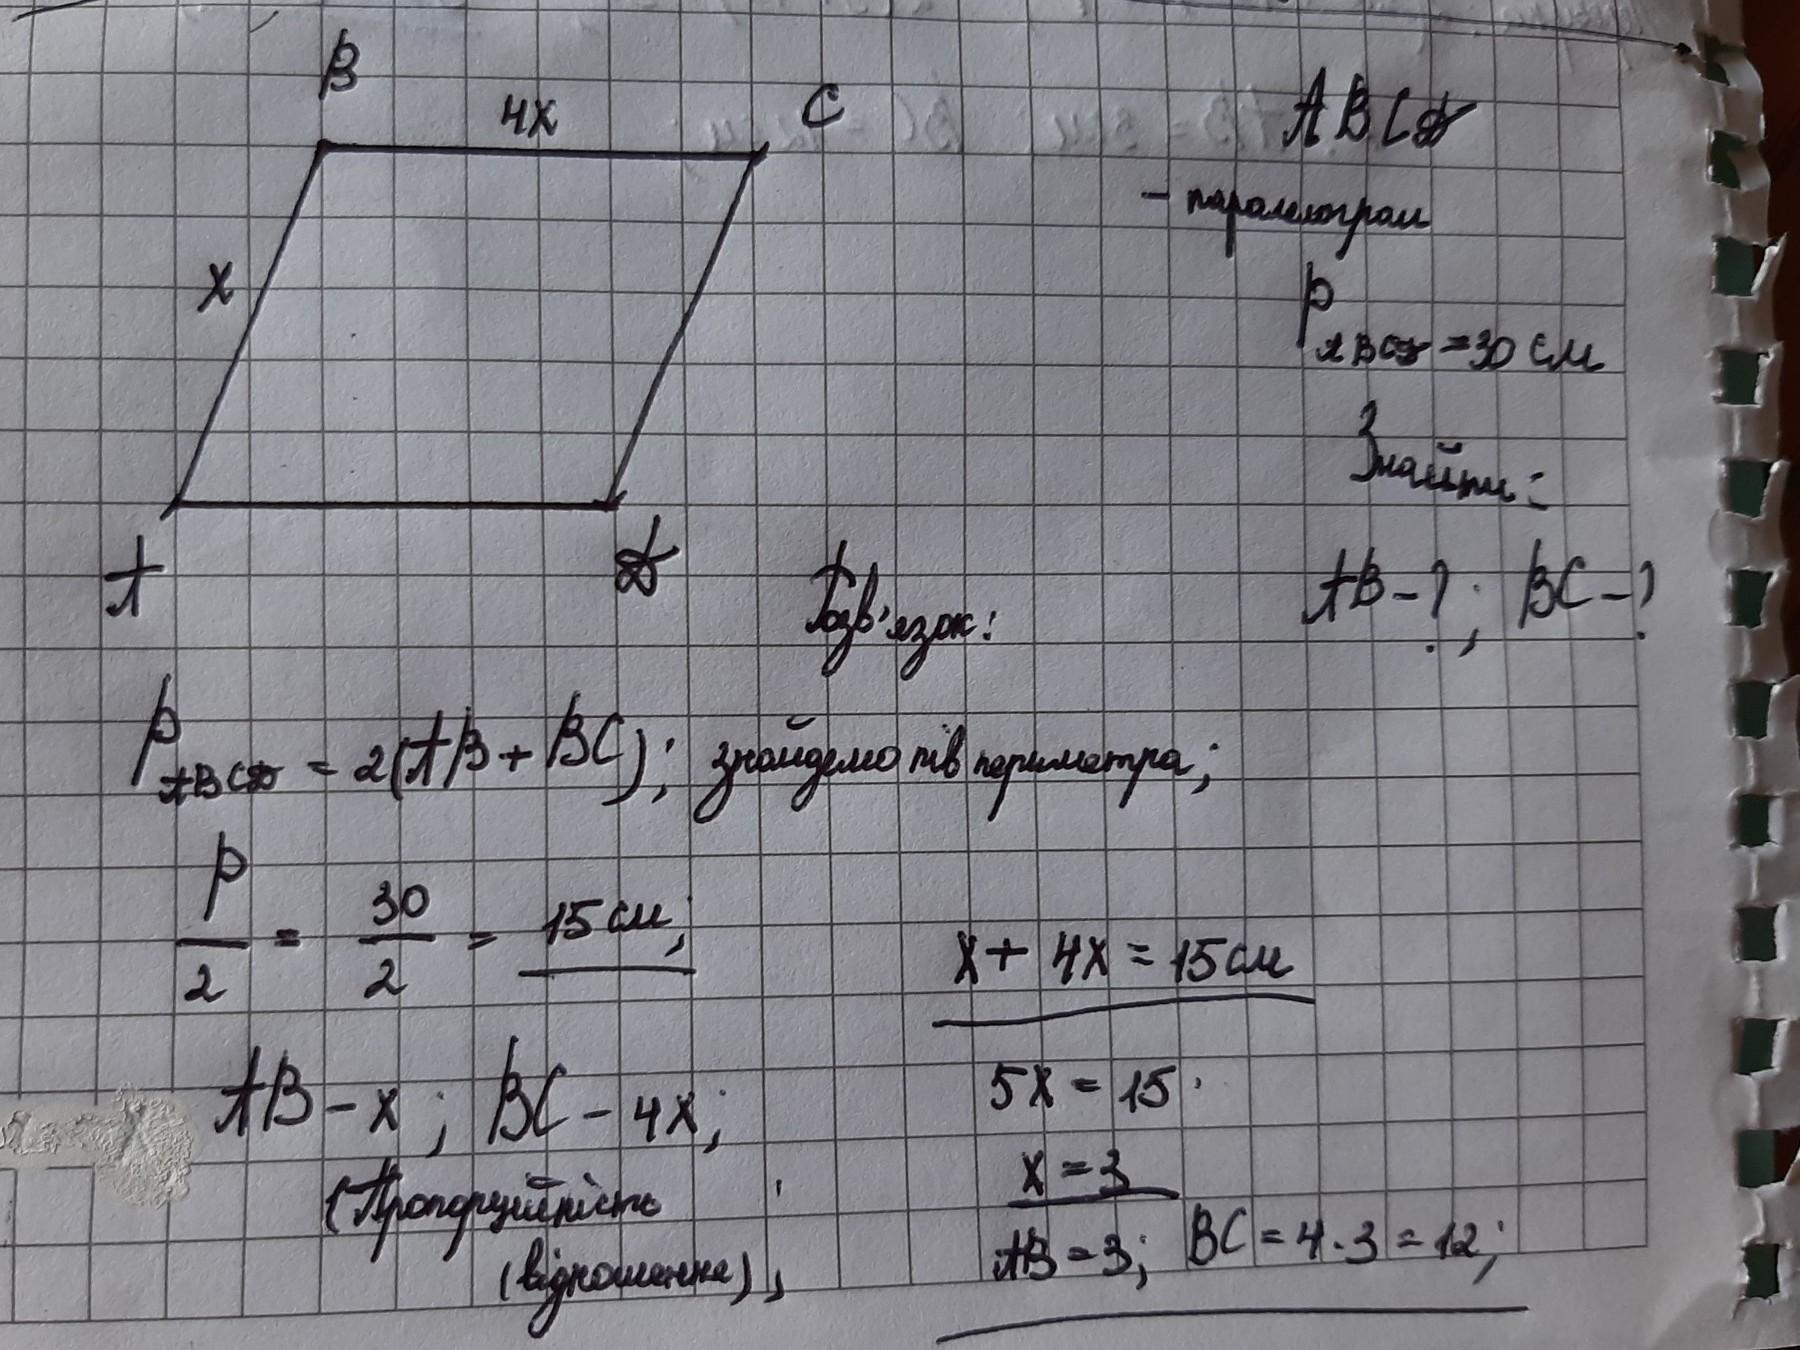 B
4x
C
x
A
D
ABCD
- паралелограм
P ABCD = 30 см
Знайти:
AB - ?; BC - ?
Розв'язок:
P ABCD = 2(AB + BC); знайдемо пів периметра;
P/2 = 30/2 = 15 см;
AB - x; BC - 4x;
(Пропорційність
(відношення);
x + 4x = 15 см
5x = 15
x = 3
AB = 3; BC = 4 · 3 = 12;